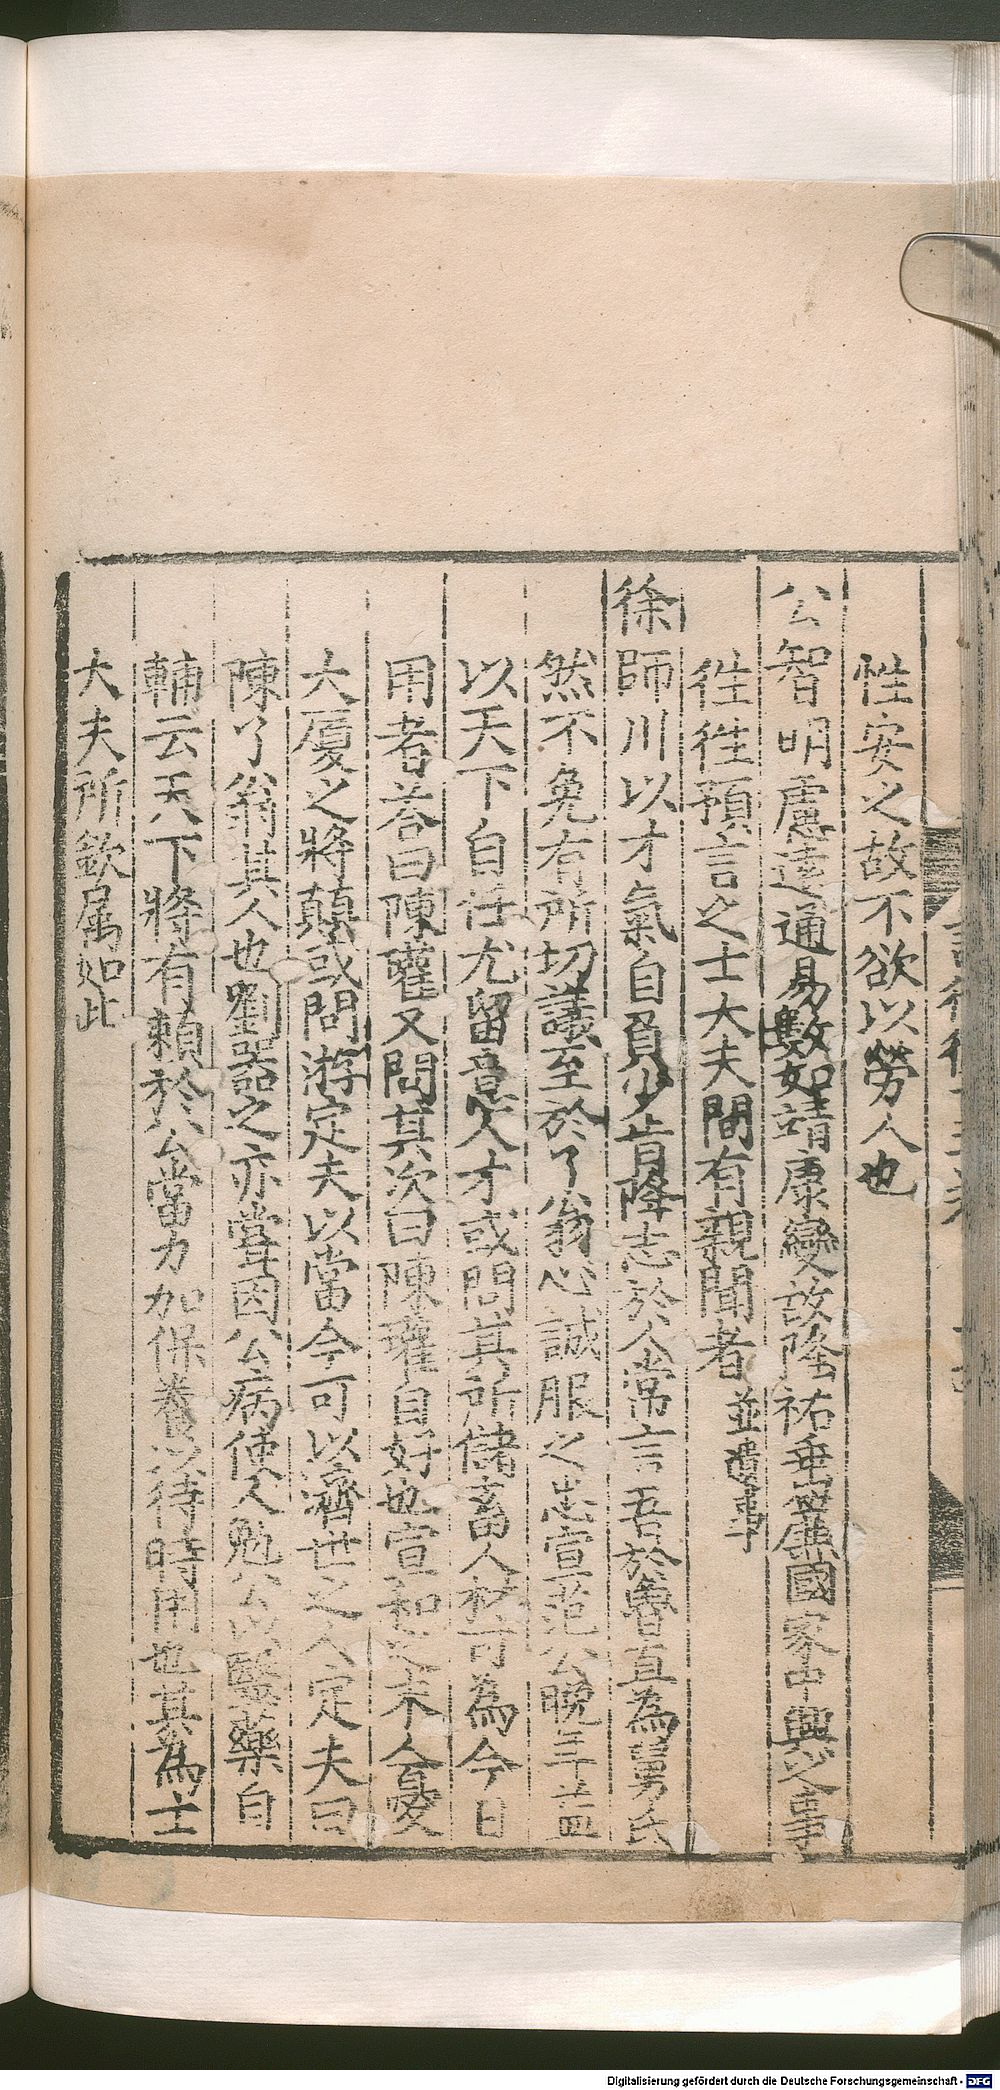 性安之故不欲以勞人也
公智明慮遠通易數如靖康變故隆祐垂簾國家中興之事
徃徃預言之士大夫間有親聞者並遺事
徐師川以才氣自負少肯降志於人常言吾於魯直為舅氏
然不免有所切議至於了翁心誠服之忠宣范公晚年益
以天下自任尤留意人才或問其所儲畜人材可為今日
用者荅曰陳瓘又問其次曰陳瓘自好也宣和之末人憂
大廈之將顛或問游定夫以當今可以濟世之人定夫曰
陳了翁其人也劉器之亦甞因公病使人勉公以醫藥自
輔云天下將有賴於公當力加保養以待時用也其為士
大夫所欽属如此
Digitalisierung gefördert durch die Deutsche Forschungsgemeinschaft - DFG